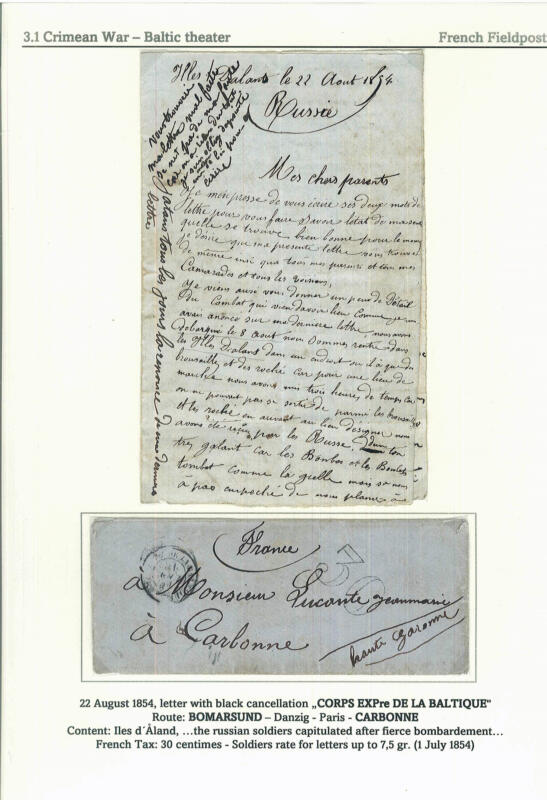 3.1 Crimean War – Baltic theater
French Fieldpost
Illes Dalans le 22 Aout 1854
Russie
Mes chers parents
Je mempresse de vous écrire ses deux mots de
lettre pour vous faire savoir létat de ma santé
quelle se trouve bien bonne pour le moment
je désire que ma presente lettre vous trouve
de même insi que tous mes parens et tous mes
Camarades et tous les voisins,
Je viens aussi vous donner un peu de détail
du Combat qui vien davoir lieu Comme je
avais anoncé sur ma dernière lettre, nous avons
debarqué le 8 Aout nous sommes rentré dans
les Ille Dalans dans un endroit où il a que du
broussaille et des roché car pour une lieu de
marche nous avons mis trois heures de temps car
on ne pouvait pas se sortir de parmi les broussaille
et les roché en arivant au lieu désigner nous
avons été reçu par les Russe dun ton
tres galant car les Bombes et les Boulets
tombait comme la grelle mais sa nous
a pas empoché de nous
lettre
France
30
à Monsieur Lucante jeanmarie
à Carbonne
haute Garonne
22 August 1854, letter with black cancellation „CORPS EXPre DE LA BALTIQUE"
Route: BOMARSUND – Danzig - Paris - CARBONNE
Content: Iles d´Åland, …the russian soldiers capitulated after fierce bombardement…
French Tax: 30 centimes - Soldiers rate for letters up to 7,5 gr. (1 July 1854)